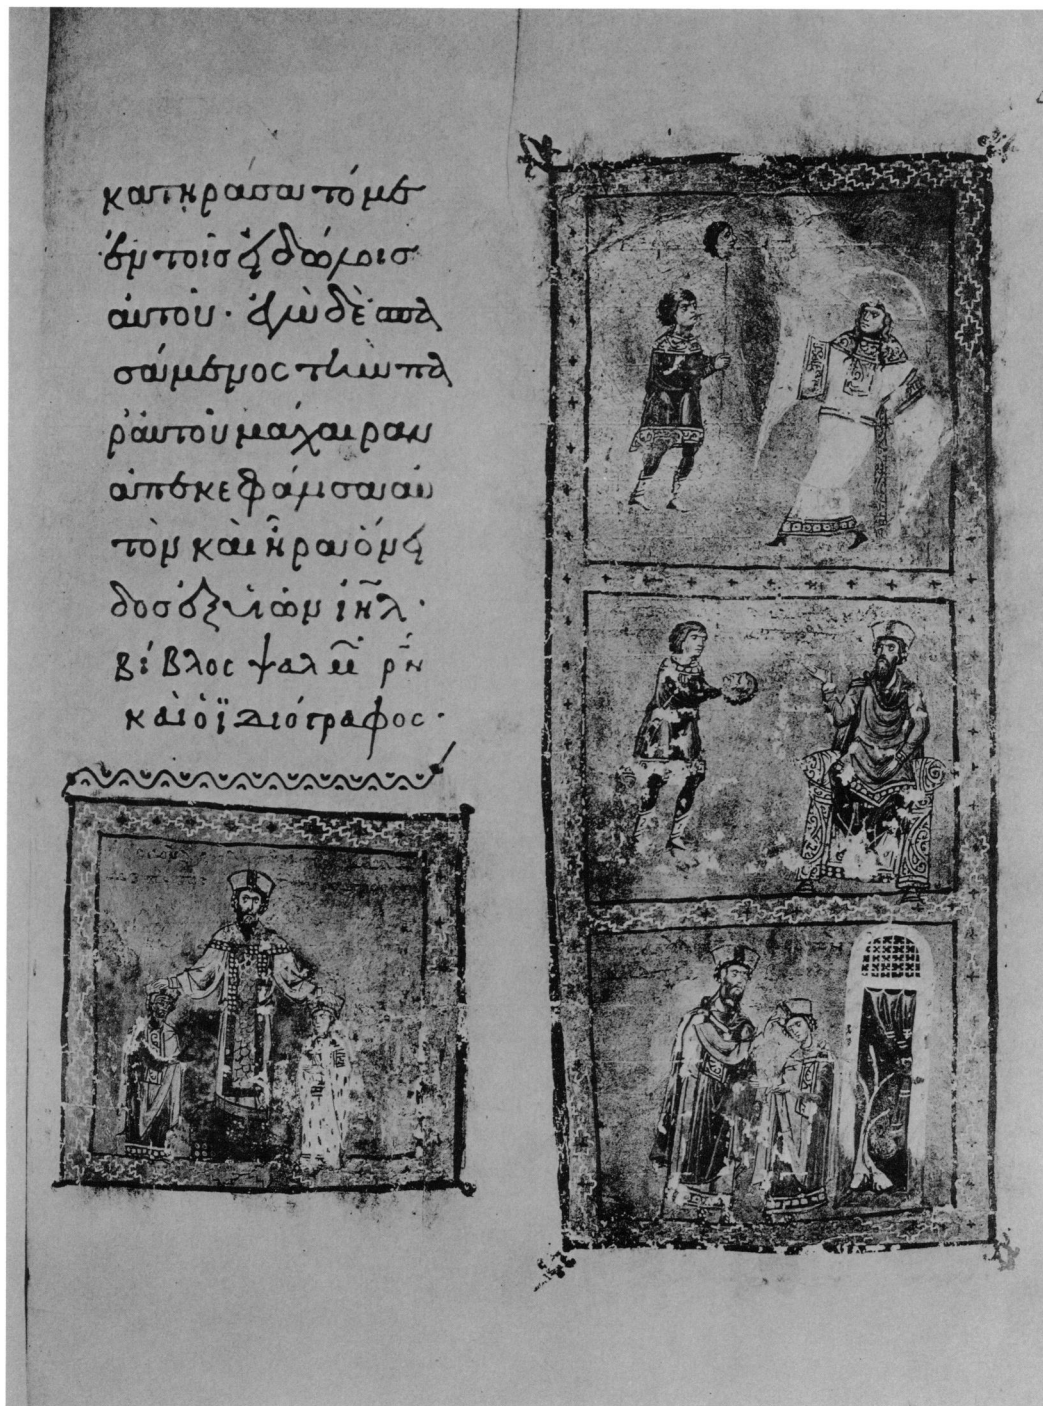 κατηράσατό με
ἐν τοῖς εἰδώλοις
αὐτοῦ· ἐγὼ δὲ σπα
σάμενος τὴν παρ
ρ αὐτοῦ μάχαιραν
ἀπεκεφάλισα αὐ
τὸν καὶ ἦρα ὄνει
δος ἐξ υἱῶν ιηλ·
βίβλος ψαλμ ρν
καὶ ὁ ἰδιόγραφος·